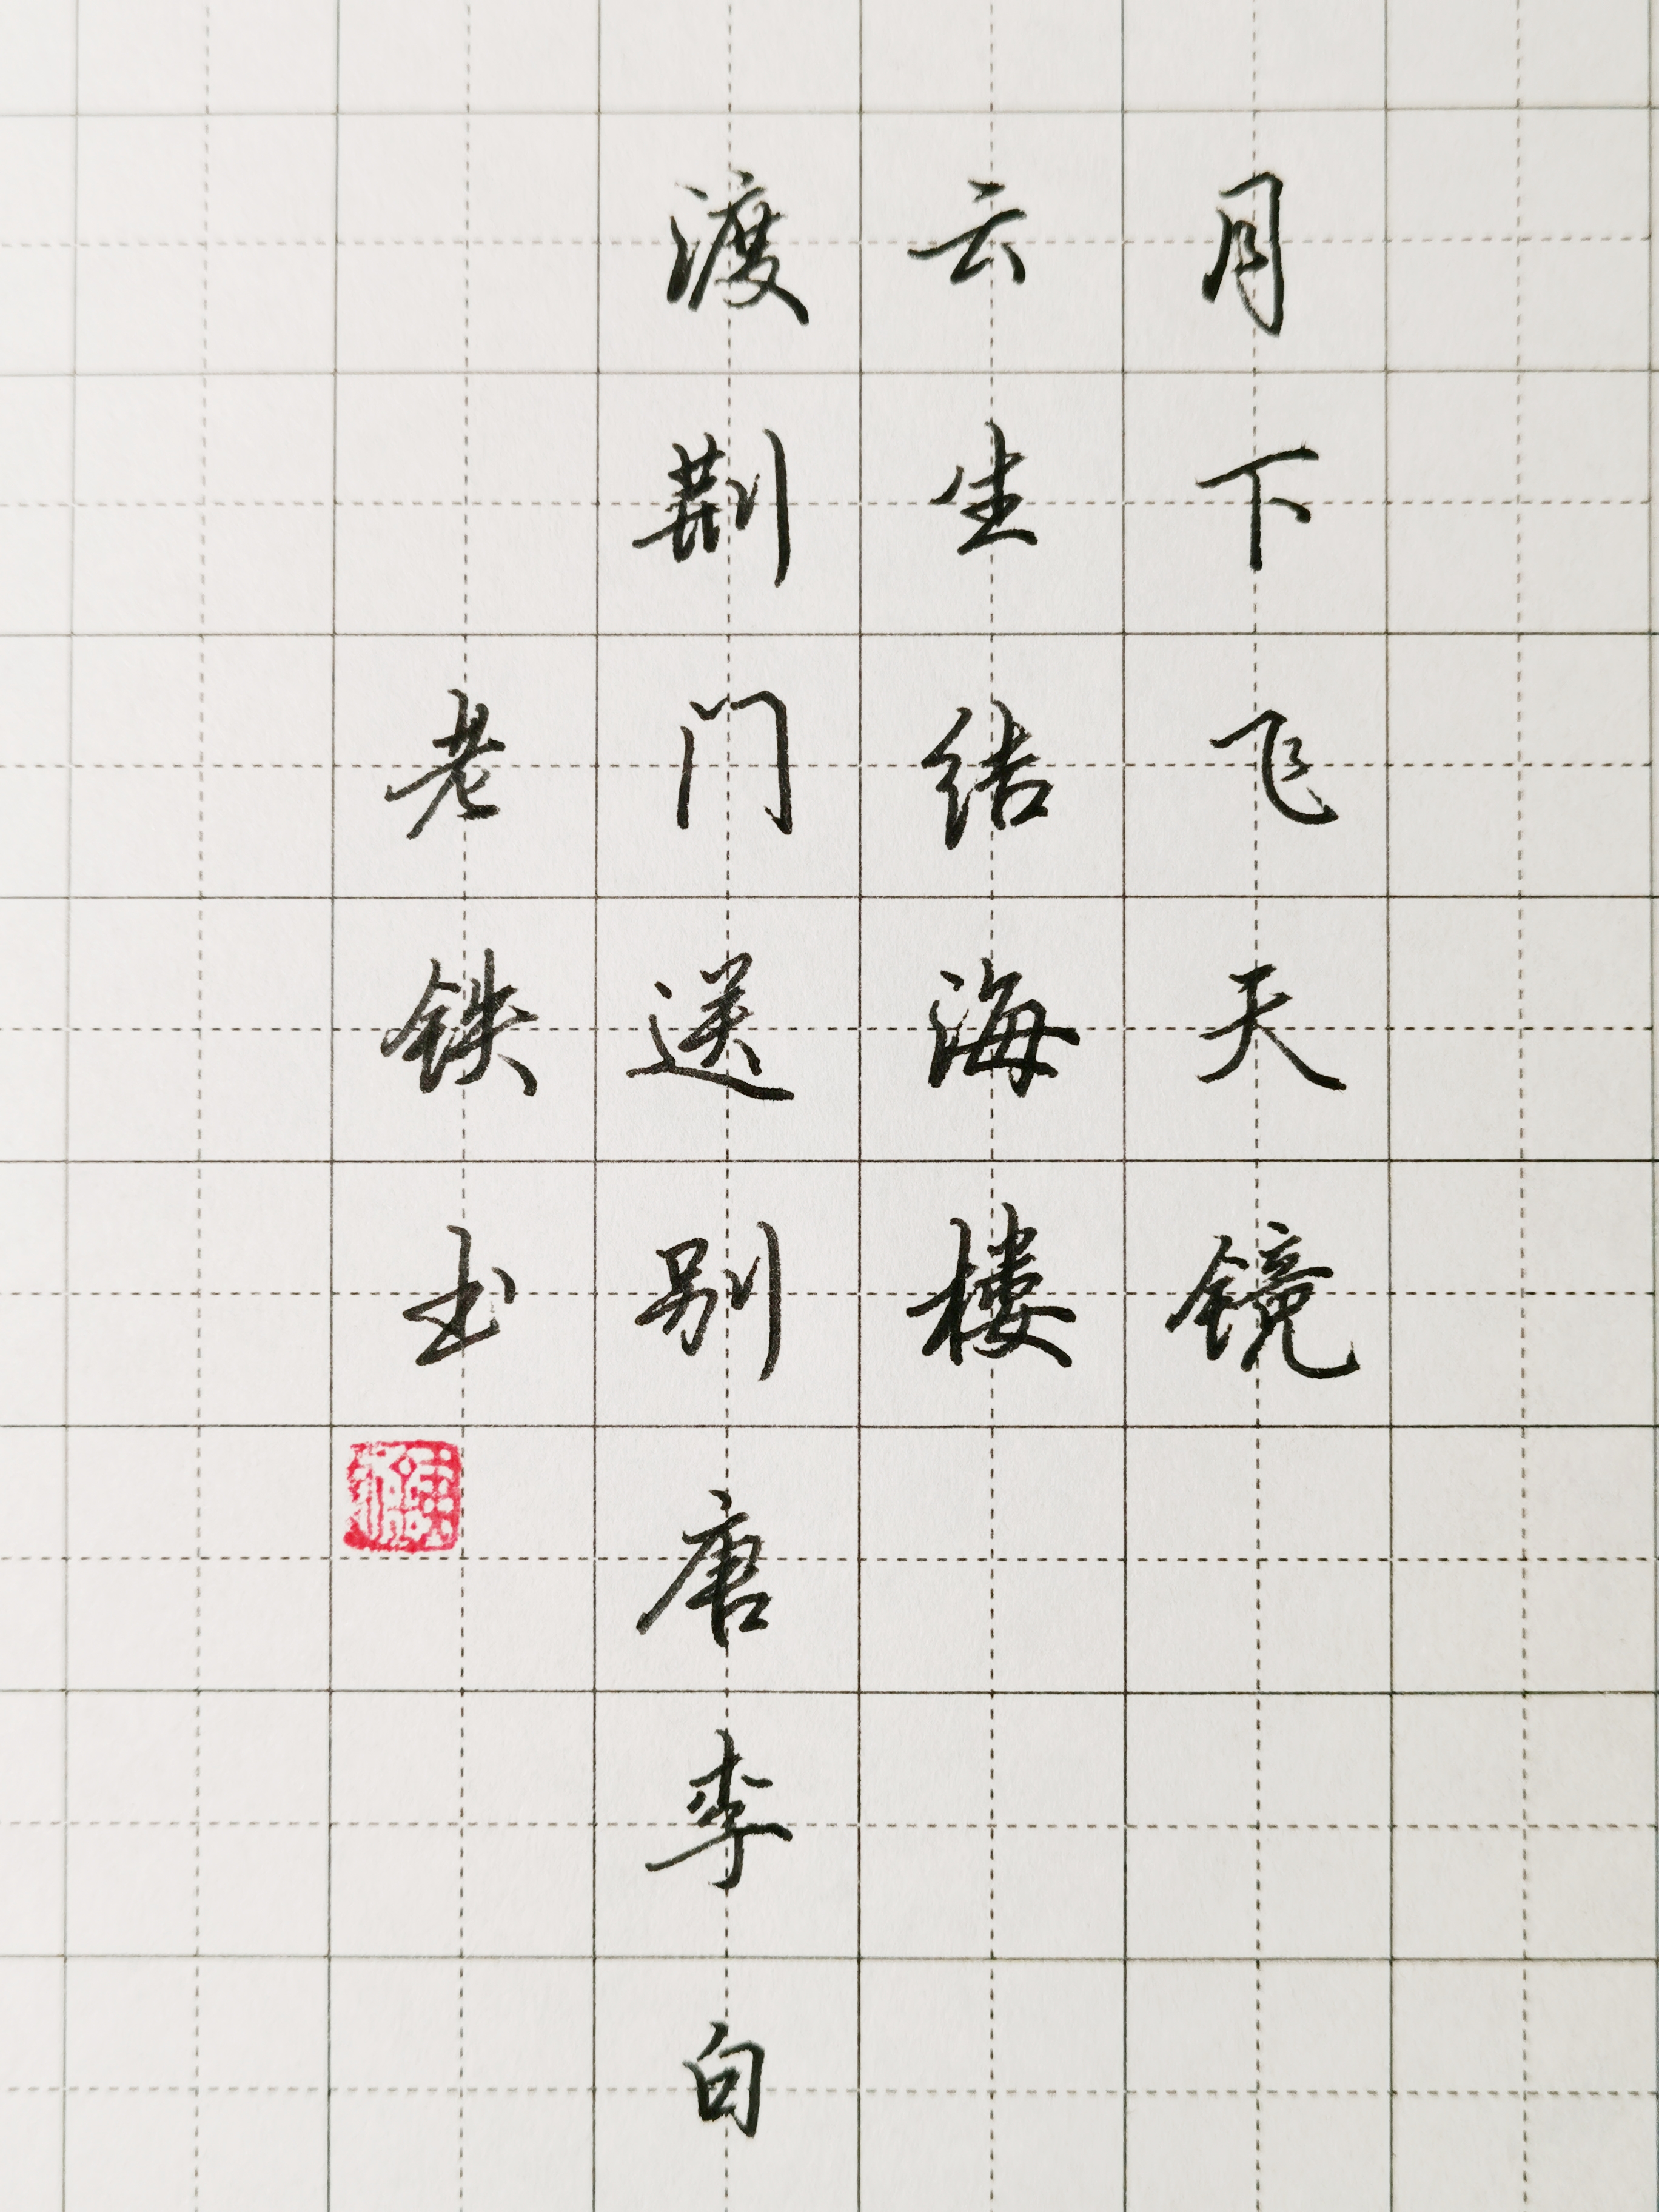 月下飞天镜
云生结海楼
渡荆门送别唐李白
老铁书